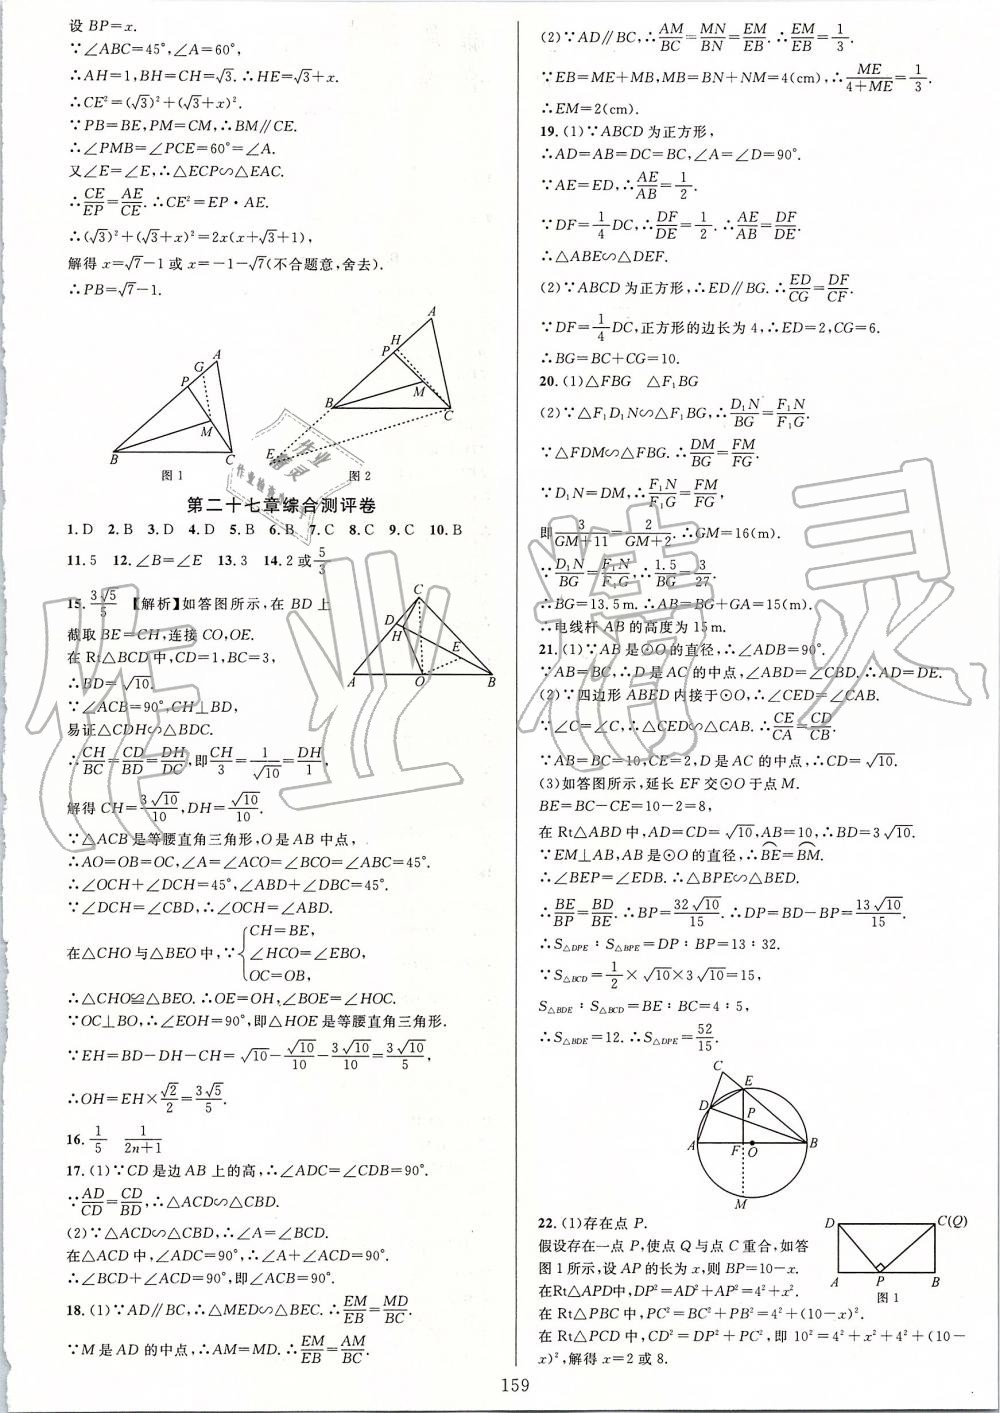 设 BP=x.
∵∠ABC=45°,∠A=60°,
∴AH=1,BH=CH=√3.∴HE=√3+x.
∴CE²=(√3)²+(√3+x)².
∵PB=BE,PM=CM,∴BM∥CE.
∴∠PMB=∠PCE=60°=∠A.
又∠E=∠E,∴△ECP∽△EAC.
∴CE/EP=AE/CE.∴CE²=EP·AE.
∴(√3)²+(√3+x)²=2x(x+√3+1),
解得 x=√7-1 或 x=-1-√7(不合题意,舍去).
∴PB=√7-1.
A
G
P
M
B
C
图 1
A
H
P
M
B
C
E
图 2
第二十七章综合测评卷
1.D 2.B 3.D 4.D 5.B 6.B 7.C 8.C 9.C 10.B
11.5 12.∠B=∠E 13.3 14.2 或 5/3
15.3√5/5 【解析】如答图所示,在 BD 上
截取 BE=CH,连接 CO,OE.
在 Rt△BCD 中,CD=1,BC=3,
∴BD=√10.
∵∠ACB=90°,CH⊥BD,
易证△CDH∽△BDC.
∴CH/BC=CD/BD=DH/DC,即CH/3=1/√10=DH/1,
解得 CH=3√10/10,DH=√10/10.
∵△ACB 是等腰直角三角形,O 是 AB 中点,
∴AO=OB=OC,∠A=∠ACO=∠BCO=∠ABC=45°.
∴∠OCH+∠DCH=45°,∠ABD+∠DBC=45°.
∵∠DCH=∠CBD,∴∠OCH=∠ABD.
在△CHO 与△BEO 中,∵{CH=BE,
∠HCO=∠EBO,
OC=OB,
∴△CHO≌△BEO.∴OE=OH,∠BOE=∠HOC.
∵OC⊥BO,∴∠EOH=90°,即△HOE 是等腰直角三角形.
∵EH=BD-DH-CH=√10-√10/10-3√10/10=3√10/5,
∴OH=EH×√2/2=3√5/5.
C
D
H
E
A
O
B
16.1/5 1/(2n+1)
17.(1)∵CD 是边 AB 上的高,∴∠ADC=∠CDB=90°.
∵AD/CD=CD/BD,∴△ACD∽△CBD.
(2)∵△ACD∽△CBD,∴∠A=∠BCD.
在△ACD 中,∠ADC=90°,∴∠A+∠ACD=90°.
∴∠BCD+∠ACD=90°,即∠ACB=90°.
18.(1)∵AD∥BC,∴△MED∽△BEC.∴EM/EB=MD/BC.
∵M 是 AD 的中点,∴AM=MD.∴EM/EB=AM/BC.
(2)∵AD∥BC,∴AM/BC=MN/BN=EM/EB.∴EM/EB=1/3.
∵EB=ME+MB,MB=BN+NM=4(cm),∴ME/(4+ME)=1/3.
∴EM=2(cm).
19.(1)∵ABCD 为正方形,
∴AD=AB=DC=BC,∠A=∠D=90°.
∵AE=ED,∴AE/AB=1/2.
∵DF=1/4DC,∴DF/DE=1/2.∴AE/AB=DF/DE.
∴△ABE∽△DEF.
(2)∵ABCD 为正方形,∴ED∥BG.∴ED/CG=DF/CF.
∵DF=1/4DC,正方形的边长为 4,∴ED=2,CG=6.
∴BG=BC+CG=10.
20.(1)△FBG △F₁BG
(2)∵△F₁D₁N∽△F₁BG,∴D₁N/BG=F₁N/F₁G.
∵△FDM∽△FBG.∴DM/BG=FM/FG.
∵D₁N=DM,∴F₁N/F₁G=FM/FG,
即3/(GM+11)=2/(GM+2).∴GM=16(m).
∵D₁N/BG=F₁N/F₁G,∴1.5/BG=3/27.
∴BG=13.5 m.∴AB=BG+GA=15(m).
∴电线杆 AB 的高度为 15 m.
21.(1)∵AB 是⊙O 的直径,∴∠ADB=90°.
∵AB=BC,∴D 是 AC 的中点,∠ABD=∠CBD.∴AD=DE.
(2)∵四边形 ABED 内接于⊙O,∴∠CED=∠CAB.
∵∠C=∠C,∴△CED∽△CAB.∴CE/CA=CD/CB.
∵AB=BC=10,CE=2,D 是 AC 的中点,∴CD=√10.
(3)如答图所示,延长 EF 交⊙O 于点 M.
BE=BC-CE=10-2=8,
在 Rt△ABD 中,AD=CD=√10,AB=10,∴BD=3√10.
∵EM⊥AB,AB 是⊙O 的直径,∴BE⌒=BM⌒.
∴∠BEP=∠EDB.∴△BPE∽△BED.
∴BE/BP=BD/BE.∴BP=32√10/15.∴DP=BD-BP=13√10/15.
∴S△DPE∶S△BPE=DP∶BP=13∶32.
∵S△BCD=1/2×√10×3√10=15,
S△BDE∶S△BCD=BE∶BC=4∶5,
∴S△BDE=12.∴S△DPE=52/15.
C
E
D
P
A
F
O
B
M
22.(1)存在点 P.
假设存在一点 P,使点 Q 与点 C 重合,如答
图 1 所示,设 AP 的长为 x,则 BP=10-x.
在Rt△APD中,DP²=AD²+AP²=4²+x².
在 Rt△PBC 中,PC²=BC²+PB²=4²+(10-x)².
在 Rt△PCD 中,CD²=DP²+PC²,即 10²=4²+x²+4²+(10-
x)²,解得 x=2 或 8.
D
C(Q)
A
P
B
图 1
159
作业精灵